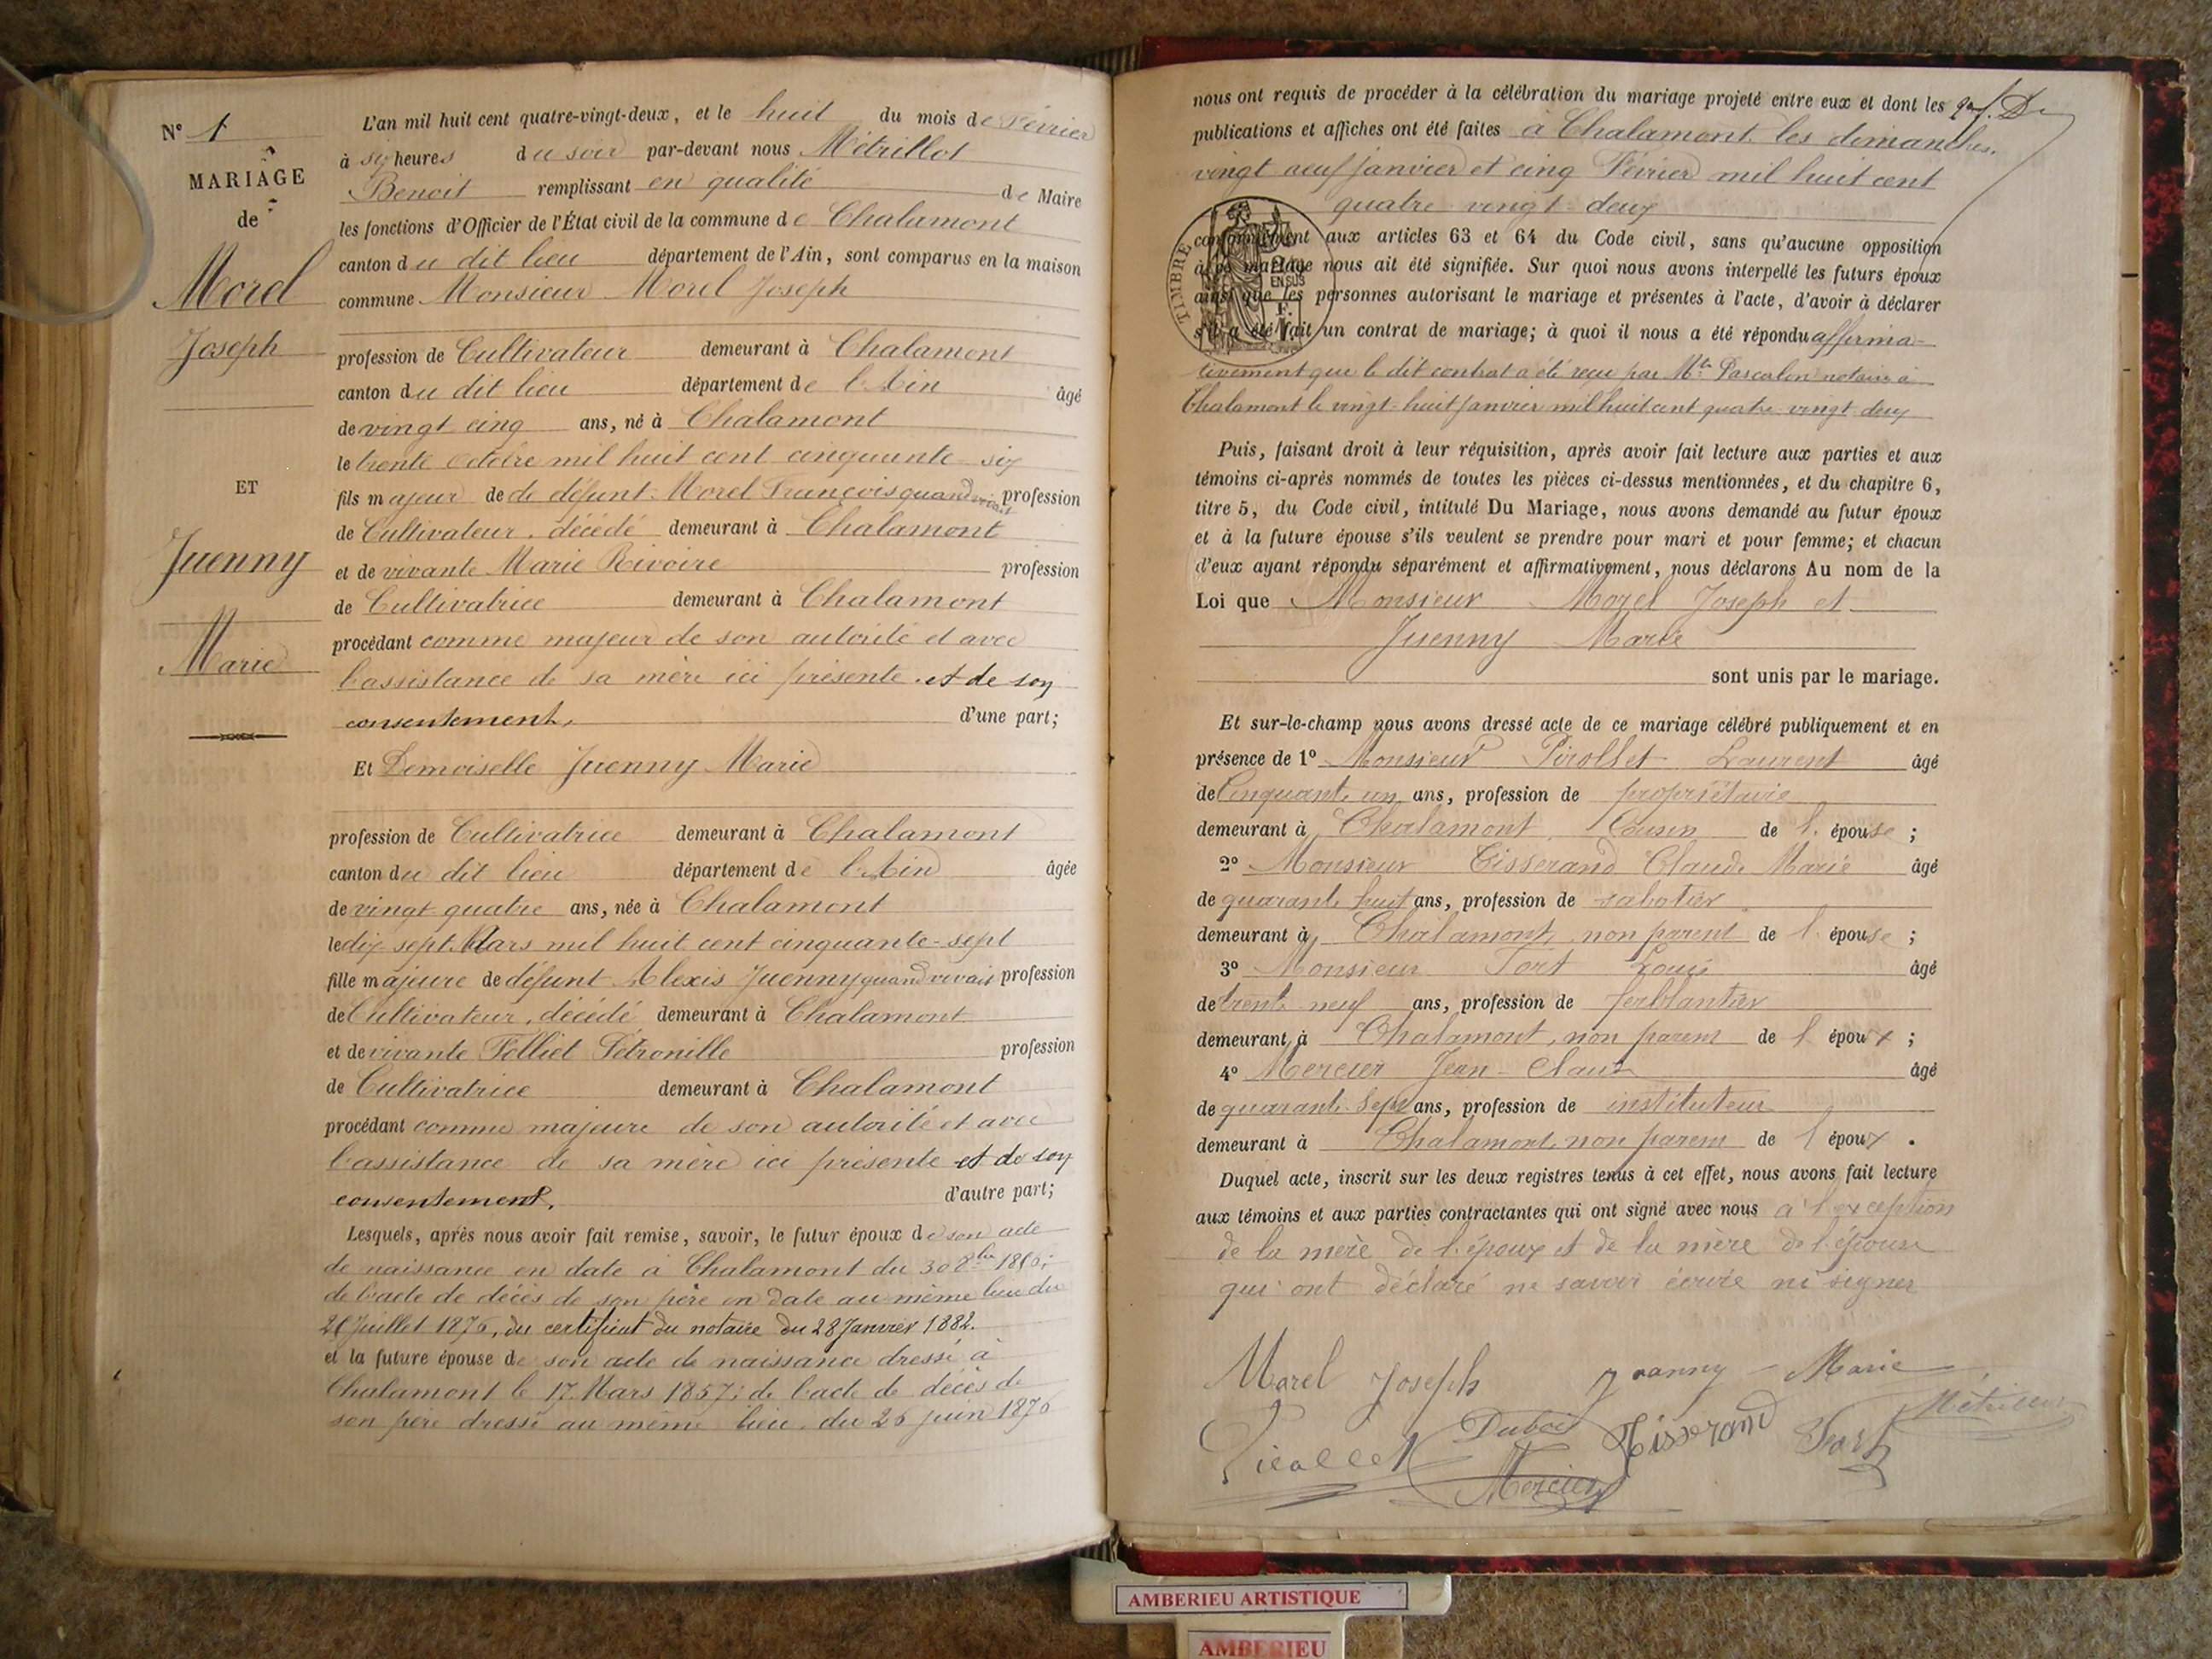 N° 1
MARIAGE
de
Morel
Joseph
ET
Juenny
Marie
L'an mil huit cent quatre-vingt-deux, et le huit du mois de Février
à six heures du soir par-devant nous Métrillot
Benoit remplissant en qualité de Maire
les fonctions d'Officier de l'État civil de la commune de Chalamont
canton du dit lieu département de l'Ain, sont comparus en la maison
commune Monsieur Morel Joseph
profession de Cultivateur demeurant à Chalamont
canton du dit lieu département de l'Ain âgé
de vingt cinq ans, né à Chalamont
le trente Octobre mil huit cent cinquante-six
fils majeur de de défunt Morel François quand vivait profession
de Cultivateur, décédé demeurant à Chalamont
et de vivante Marie Rivoire profession
de Cultivatrice demeurant à Chalamont
procédant comme majeur de son autorité et avec
l'assistance de sa mère ici présente et de son
consentement, d'une part;
Et Demoiselle Juenny Marie
profession de Cultivatrice demeurant à Chalamont
canton du dit lieu département de l'Ain âgée
de vingt quatre ans, née à Chalamont
le dix sept Mars mil huit cent cinquante-sept
fille majeure de défunt Alexis Juenny quand vivait profession
de Cultivateur, décédé demeurant à Chalamont
et de vivante Pelliet Pétronille profession
de Cultivatrice demeurant à Chalamont
procédant comme majeure de son autorité et avec
l'assistance de sa mère ici présente et de son
consentement. d'autre part;
Lesquels, après nous avoir fait remise, savoir, le futur époux de son acte
de naissance en date à Chalamont du 30 8bre
de l'acte de décès de son père en date au même lieu du
Juillet 1876, du certificat du notaire du 28 Janvier 1882.
et la future épouse de son acte de naissance dressé à
Chalamont le 17 Mars 1857; de l'acte de décès de
son père dressé au même lieu du 26 juin 1876
nous ont requis de procéder à la célébration du mariage projeté entre eux et dont les
publications et affiches ont été faites à Chalamont les dimanches
vingt neuf Janvier et cinq Février mil huit cent
quatre vingt deux
conformément aux articles 63 et 64 du Code civil, sans qu'aucune opposition
à ce mariage nous ait été signifiée. Sur quoi nous avons interpellé les futurs époux
ainsi que les personnes autorisant le mariage et présentes à l'acte, d'avoir à déclarer
s'il a été fait un contrat de mariage; à quoi il nous a été répondu affirma-
tivement que le dit contrat a été reçu par Mtre Pascalon notaire à
Chalamont le vingt-huit Janvier mil huit cent quatre vingt deux
TIMBRE
EN SUS
Puis, faisant droit à leur réquisition, après avoir fait lecture aux parties et aux
témoins ci-après nommés de toutes les pièces ci-dessus mentionnées, et du chapitre 6,
titre 5, du Code civil, intitulé Du Mariage, nous avons demandé au futur époux
et à la future épouse s'ils veulent se prendre pour mari et pour femme; et chacun
d'eux ayant répondu séparément et affirmativement, nous déclarons Au nom de la
Loi que Monsieur Morel Joseph et
Juenny Marie
sont unis par le mariage.
Et sur-le-champ nous avons dressé acte de ce mariage célébré publiquement et en
présence de 1° Monsieur Pirollet Laurent âgé
de Cinquante un ans, profession de propriétaire
demeurant à Chalamont Cousin de l'épouse;
2° Monsieur Tisserand Claude Marie âgé
de quarante huit ans, profession de sabotier
demeurant à Chalamont, non parent de l'épouse;
3° Monsieur Fort Louis âgé
de trente neuf ans, profession de ferblantier
demeurant à Chalamont, non parent de l'époux;
4° Mercier Jean-Claude âgé
de quarante-sept ans, profession de instituteur
demeurant à Chalamont, non parent de l'époux.
Duquel acte, inscrit sur les deux registres tenus à cet effet, nous avons fait lecture
aux témoins et aux parties contractantes qui ont signé avec nous à l'exception
de la mère de l'époux et de la mère de l'épouse
qui ont déclaré ne savoir écrire ni signer
Morel Joseph Juanny-Marie
Pirollet Dubois Tisserand Fort Métrillot
Mercier
AMBERIEU ARTISTIQUE
AMBERIEU